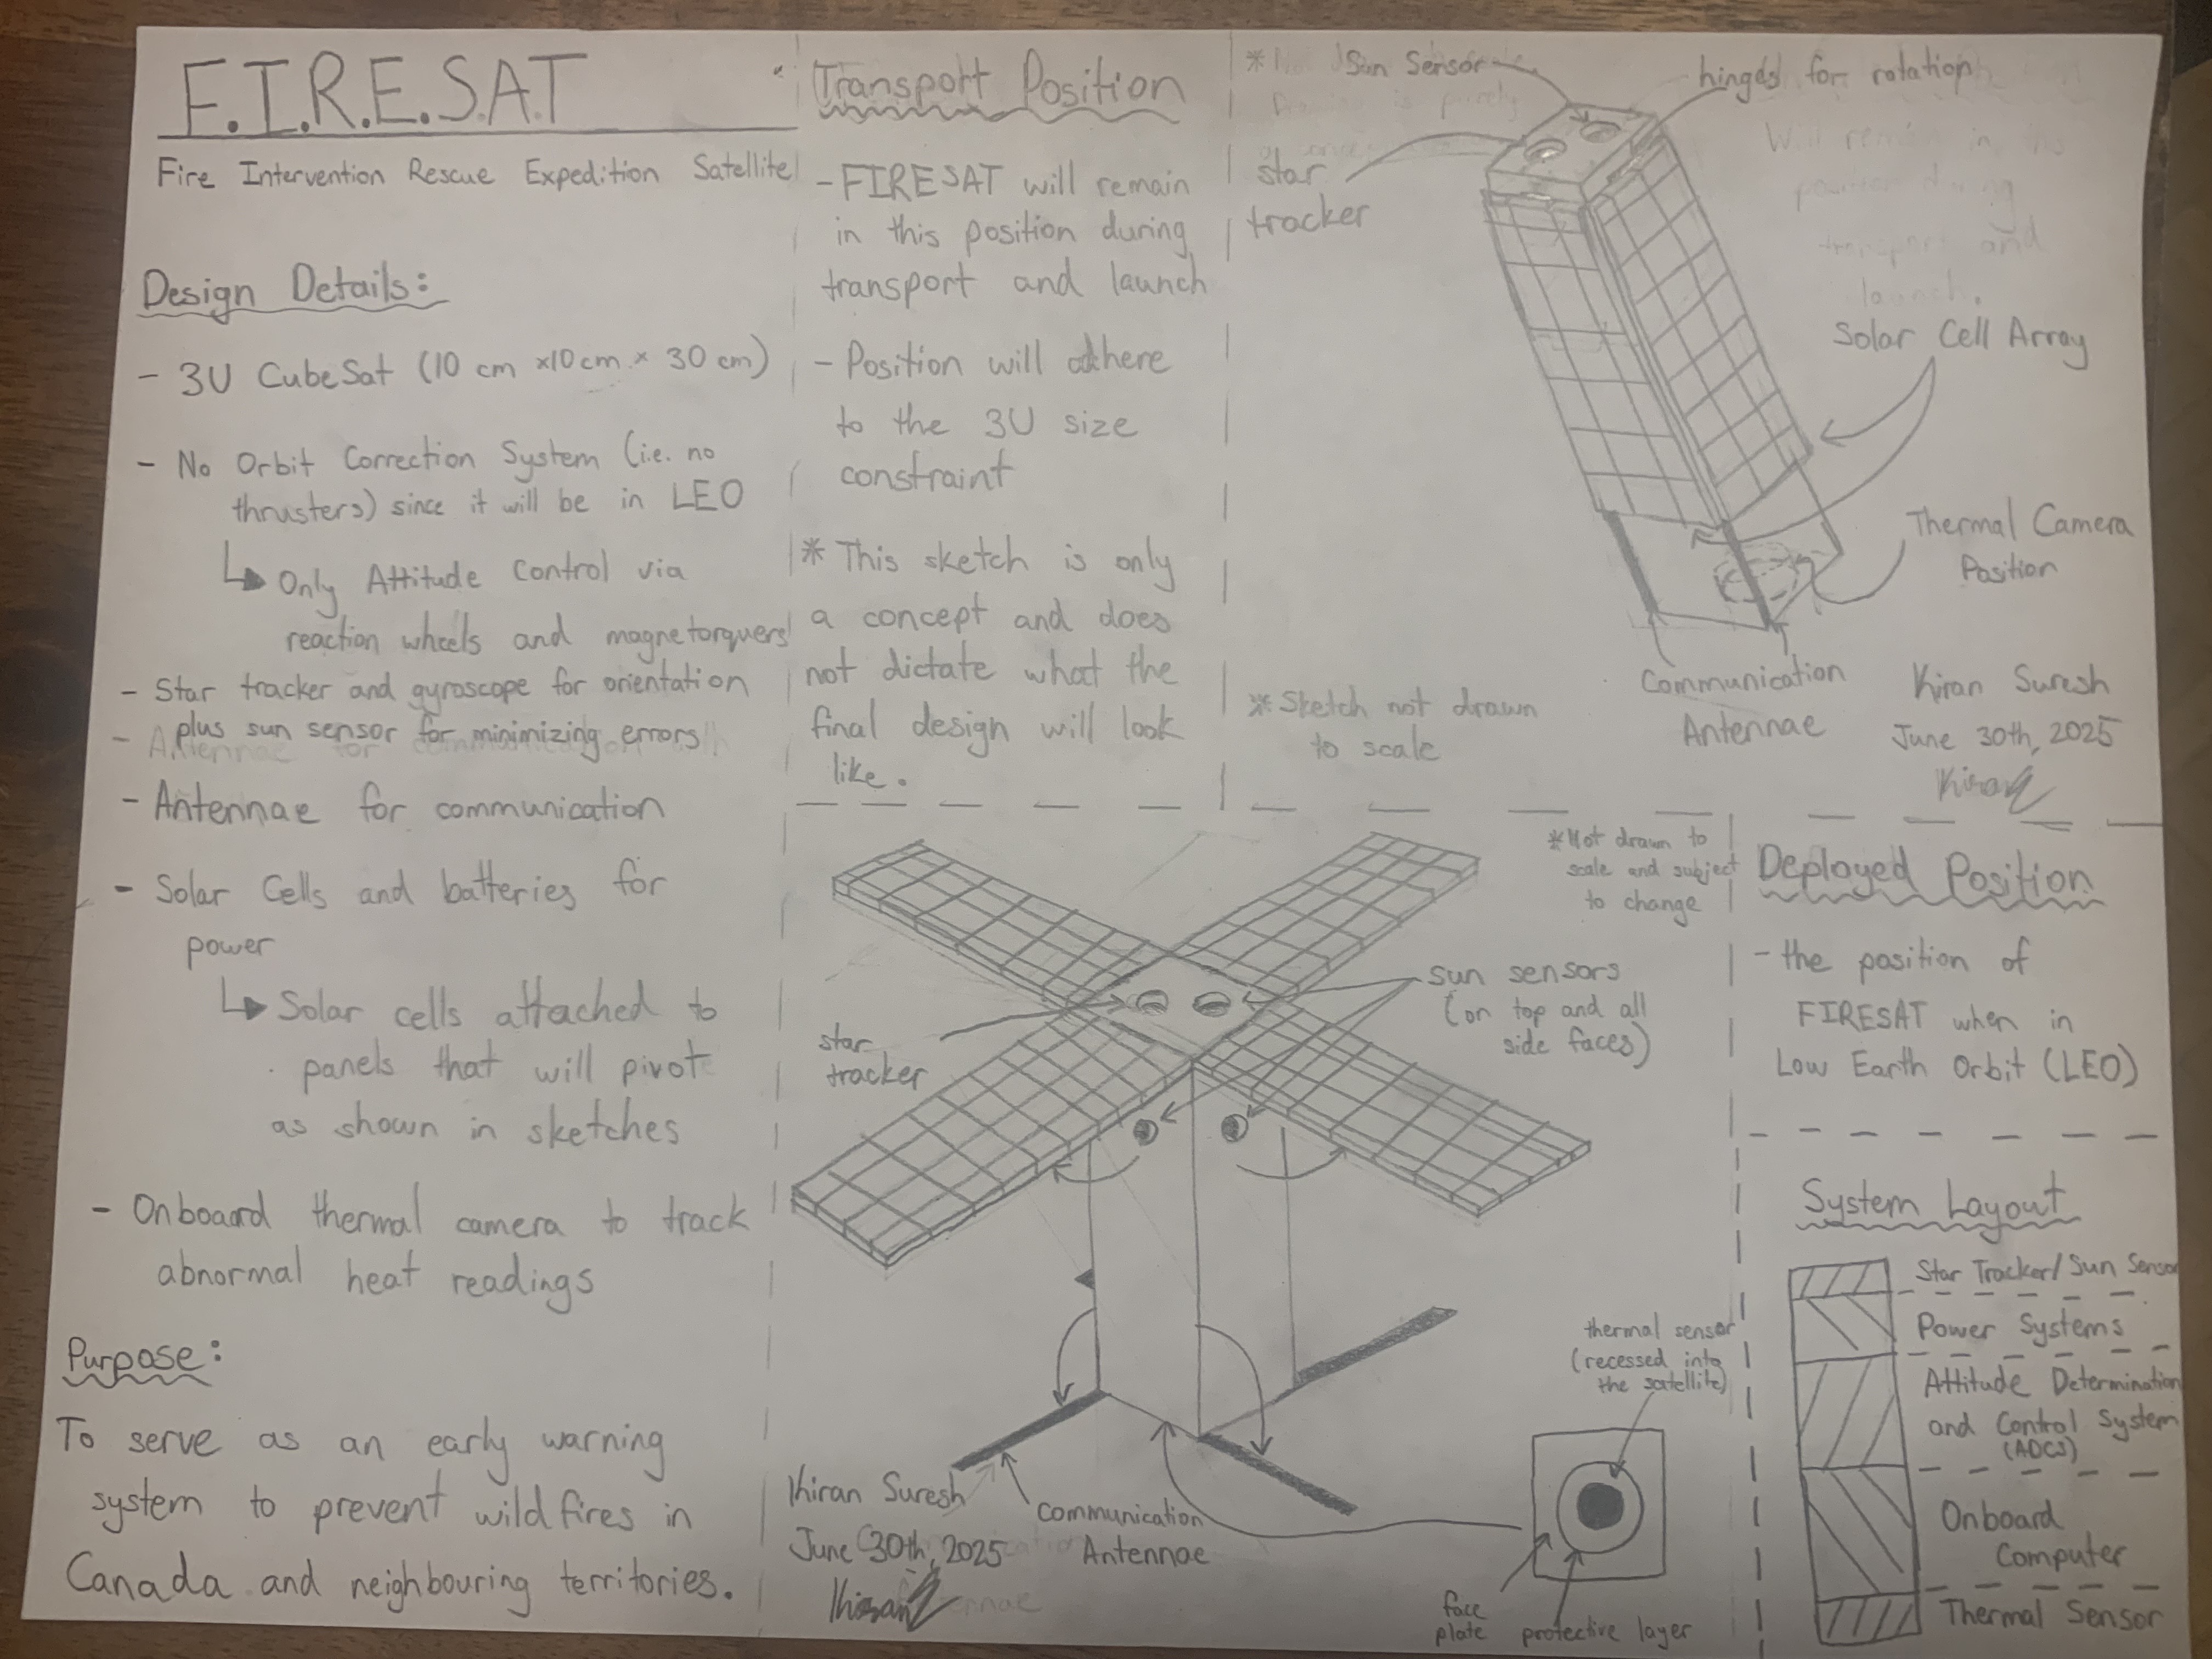 F.I.R.E.S.A.T
Fire Intervention Rescue Expedition Satellite
Design Details:
- 3U CubeSat (10 cm x10cm x 30 cm)
- No Orbit Correction System (i.e. no
thrusters) since it will be in LEO
↳ Only Attitude Control via
reaction wheels and magnetorquers
- Star tracker and gyroscope for orientation
plus sun sensor for minimizing errors
- Antennae for communication
- Solar Cells and batteries for
power
↳ Solar cells attached to
panels that will pivot
as shown in sketches
- Onboard thermal camera to track
abnormal heat readings
Purpose:
To serve as an early warning
system to prevent wildfires in
Canada and neighbouring territories.
Transport Position
- FIRESAT will remain
in this position during
transport and launch
- Position will adhere
to the 3U size
constraint
* This sketch is only
a concept and does
not dictate what the
final design will look
like.
Sun Sensor
hinges for rotation
star
tracker
Solar Cell Array
Thermal Camera
Position
Communication
Antennae
* Sketch not drawn
to scale
Kiran Suresh
June 30th, 2025
Kiran
* Not drawn to
scale and subject
to change
sun sensors
(on top and all
side faces)
star
tracker
thermal sensor
(recessed into
the satellite)
Communication
Antennae
face
plate
protective layer
Kiran Suresh
June 30th, 2025
Kiran
Deployed Position
- the position of
FIRESAT when in
Low Earth Orbit (LEO)
System Layout
Star Tracker/Sun Sensor
Power Systems
Attitude Determination
and Control System
(ADCS)
Onboard
Computer
Thermal Sensor